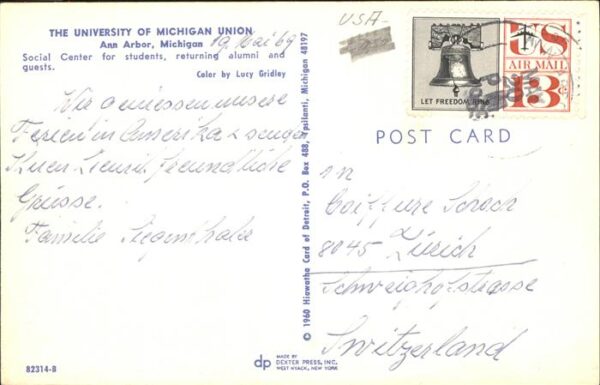 THE UNIVERSITY OF MICHIGAN UNION
Ann Arbor, Michigan 19. Mai 69
Social Center for students, returning alumni and
guests.
Color by Lucy Gridley
Wir geniessen unsere
Ferien in Amerika & sengen
Ihnen freundliche
Grüsse.
Familie Siegenthaler
82314-B
© 1960 Hiawatha Card of Detroit, P.O. Box 488, Ypsilanti, Michigan 48197
dp MADE BY
DEXTER PRESS, INC.
WEST NYACK, NEW YORK
USA
LET FREEDOM RING
US
AIR MAIL
13c
POST CARD
An
Coiffure Schoch
8045 Zürich
Schweighofstrasse
Switzerland